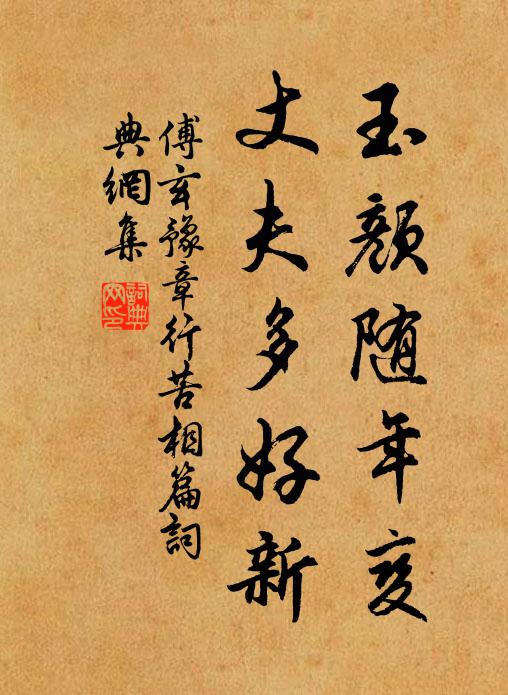 玉颜随年变
丈夫多好新
傅玄豫章行苦相篇詞
典網集
詞典
网印